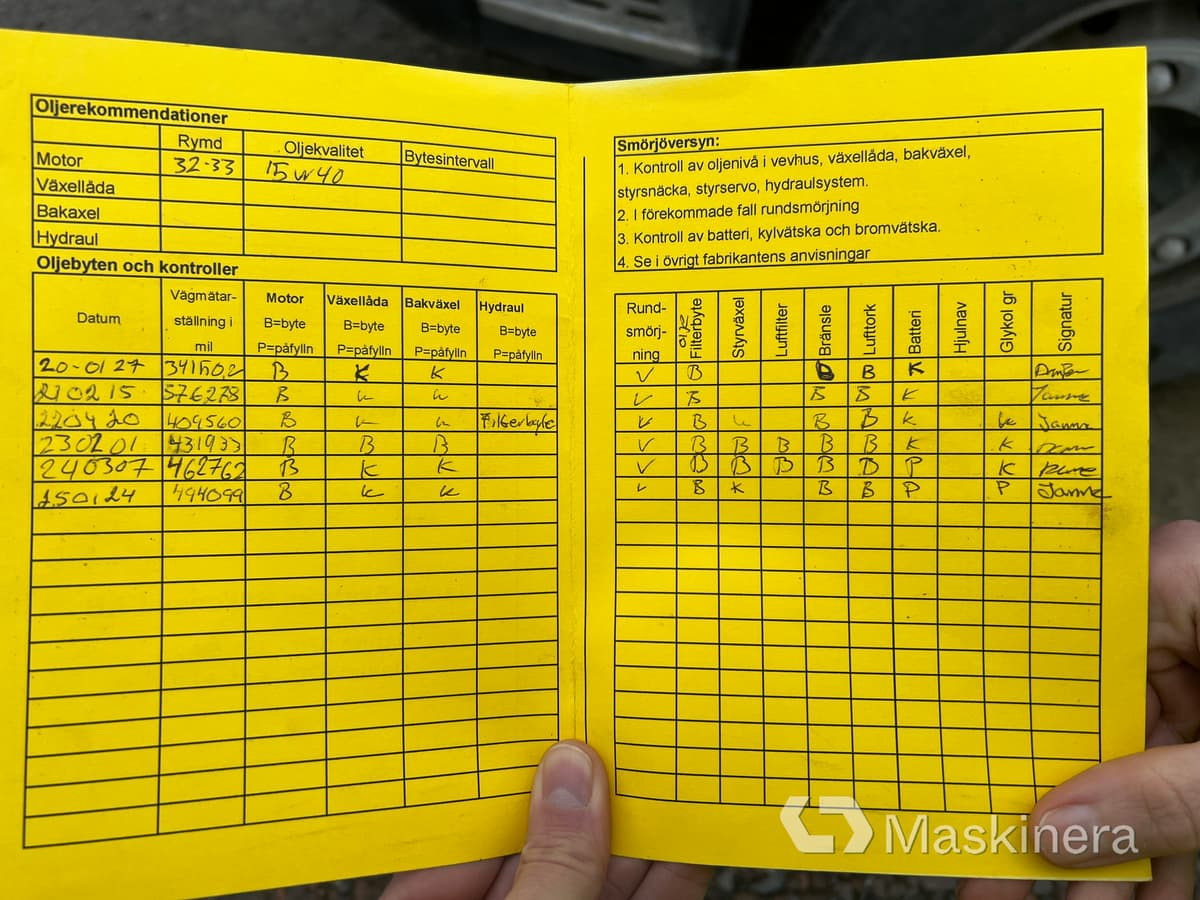 Oljerekommendationer
Rymd Oljekvalitet Bytesintervall
Motor 32-33 15w40
Växellåda
Bakaxel
Hydraul
Oljebyten och kontroller
Datum Vägmätar-ställning i mil Motor B=byte P=påfylln Växellåda B=byte P=påfylln Bakväxel B=byte P=påfylln Hydraul B=byte P=påfylln
20-01 27 341502 B K K
210215 376278 B K K
220420 409560 B K K Filterbyte
230201 431933 B B B
240307 462762 B K K
250124 494099 B K K
Smörjöversyn:
1. Kontroll av oljenivå i vevhus, växellåda, bakväxel,
styrsnäcka, styrservo, hydraulsystem.
2. I förekommade fall rundsmörjning
3. Kontroll av batteri, kylvätska och bromvätska.
4. Se i övrigt fabrikantens anvisningar
Rund-smörj-ning olje Filterbyte Styrväxel Luftfilter Bränsle Lufttork Batteri Hjulnav Glykol gr Signatur
✓ B B K
✓ B B B K Janne
✓ B K B B K K Janne
✓ B B B B B K K
✓ B B B B B P K
✓ B K B B P P Janne
Maskinera